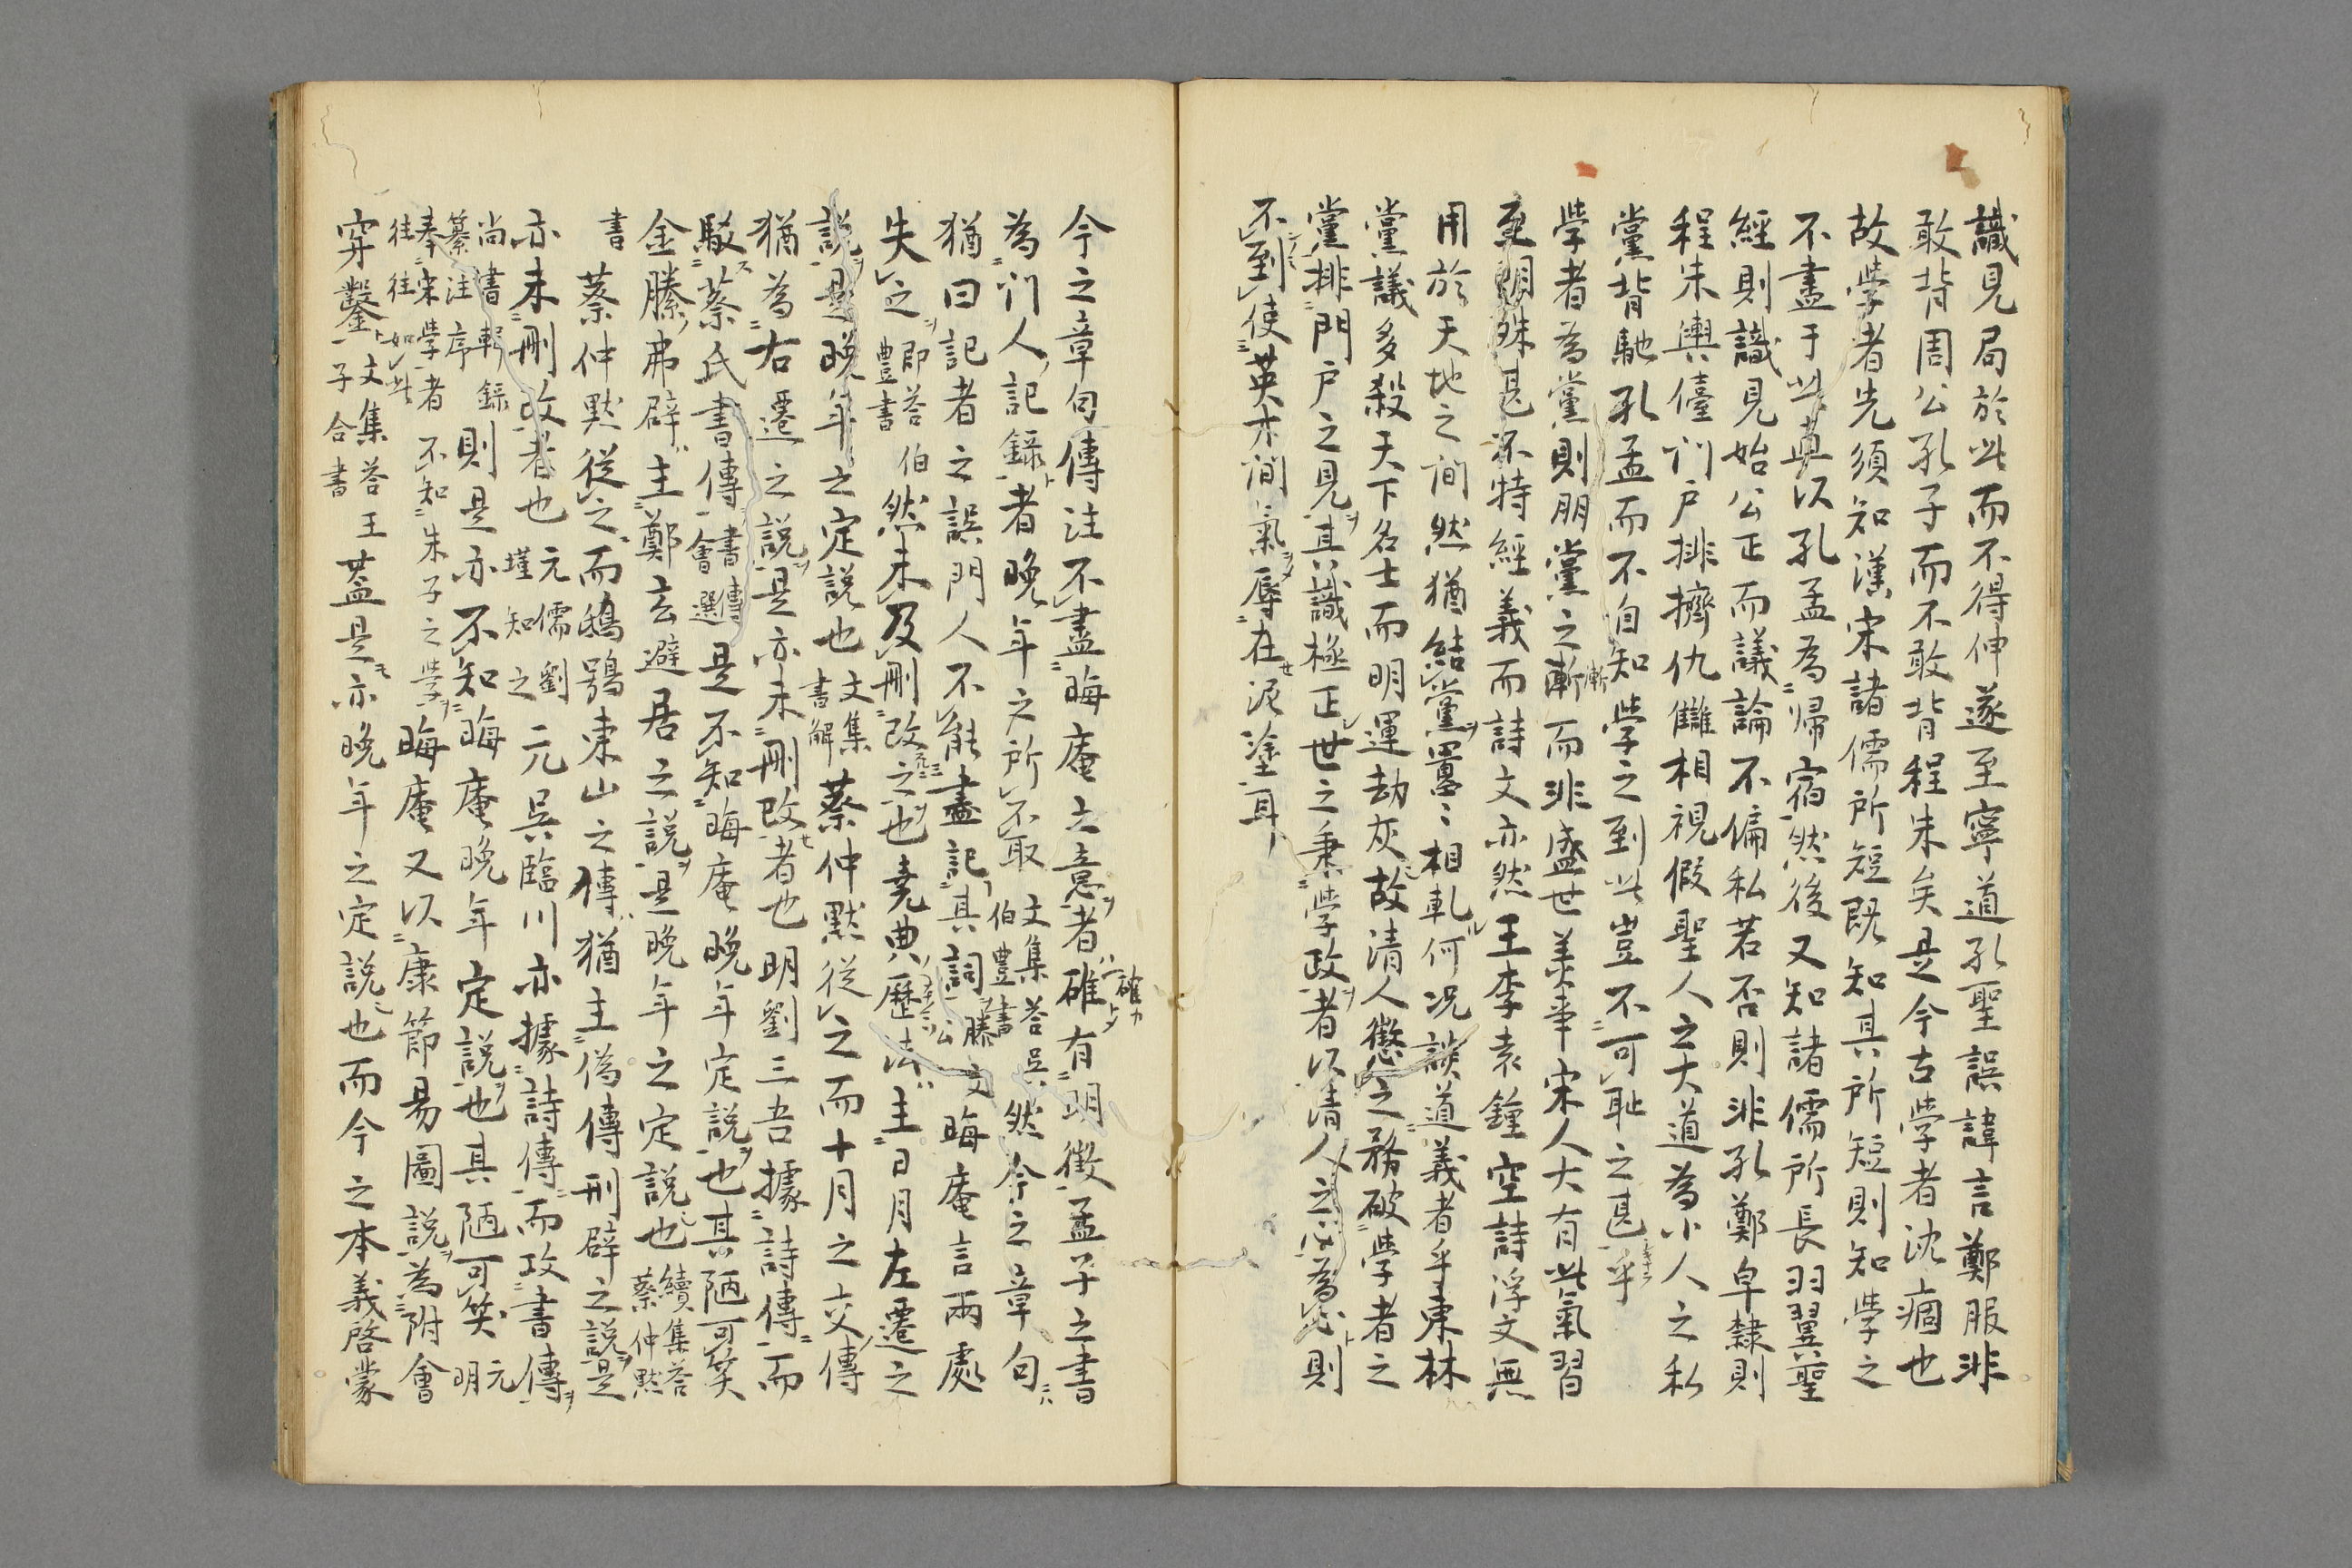 識見局於此而不得伸遂至寧道孔聖誤諱言鄭服非
敢背周公孔子而不敢背程朱矣是今古学者沈痼也
故学者先須知漢宋諸儒所短既知其所短則知学之
不盡于此典以孔孟為歸宿然後又知諸儒所長羽翼聖
經則識見始公正而議論不偏私若否則非孔鄭皁隸則
程朱輿儓門户排擠仇讎相視假聖人之大道為小人之私
黨背馳孔孟而不自知学之到此豈不可恥之甚乎
学者為黨則朋黨之漸而非盛世美事宋人大有此氣習
至明殊甚不特經義而詩文亦然王李袁鍾空詩浮文無
用於天地之間然猶結黨置〻相軋何況談道義者乎東林
黨議多殺天下名士而明運劫灰故清人懲之務破学者之
黨排門户之見其識極正世之秉学政者以清人之心為心則
不到使英才間氣辱在泥塗耳
今之章句傳注不盡晦庵之意者確有明徴孟子之書
為門人記録者晩年之所不取文集荅吳伯豐書然今之章句
猶曰記者之誤門人不能盡記其詞滕文公晦庵言兩處
失之即荅伯豐書然未及刪改之也堯典歴法主日月左遷之
説是晩年之定説也文集書解蔡仲默從之而十月之交傳
猶為右遷之説是亦未刪改者也明劉三吾據詩傳而
駁蔡氏書傳書傳會選是不知晦庵晩年定説也其陋可笑
金縢弗辟主鄭玄避居之説是晩年之定説也續集荅蔡仲默
書蔡仲默從之而鴟鴞東山之傳猶主偽傳刑辟之説是
亦未刪改者也元儒劉瑾知之元吳臨川亦據詩傳而攻書傳
尚書輯録纂注序則是亦不知晦庵晩年定説也其陋可笑元明
奉宋学者不知朱子之学往往如此晦庵又以康節易圖説為附會
穿鑿文集荅王子合書蓋是亦晩年之定説也而今之本義啓蒙